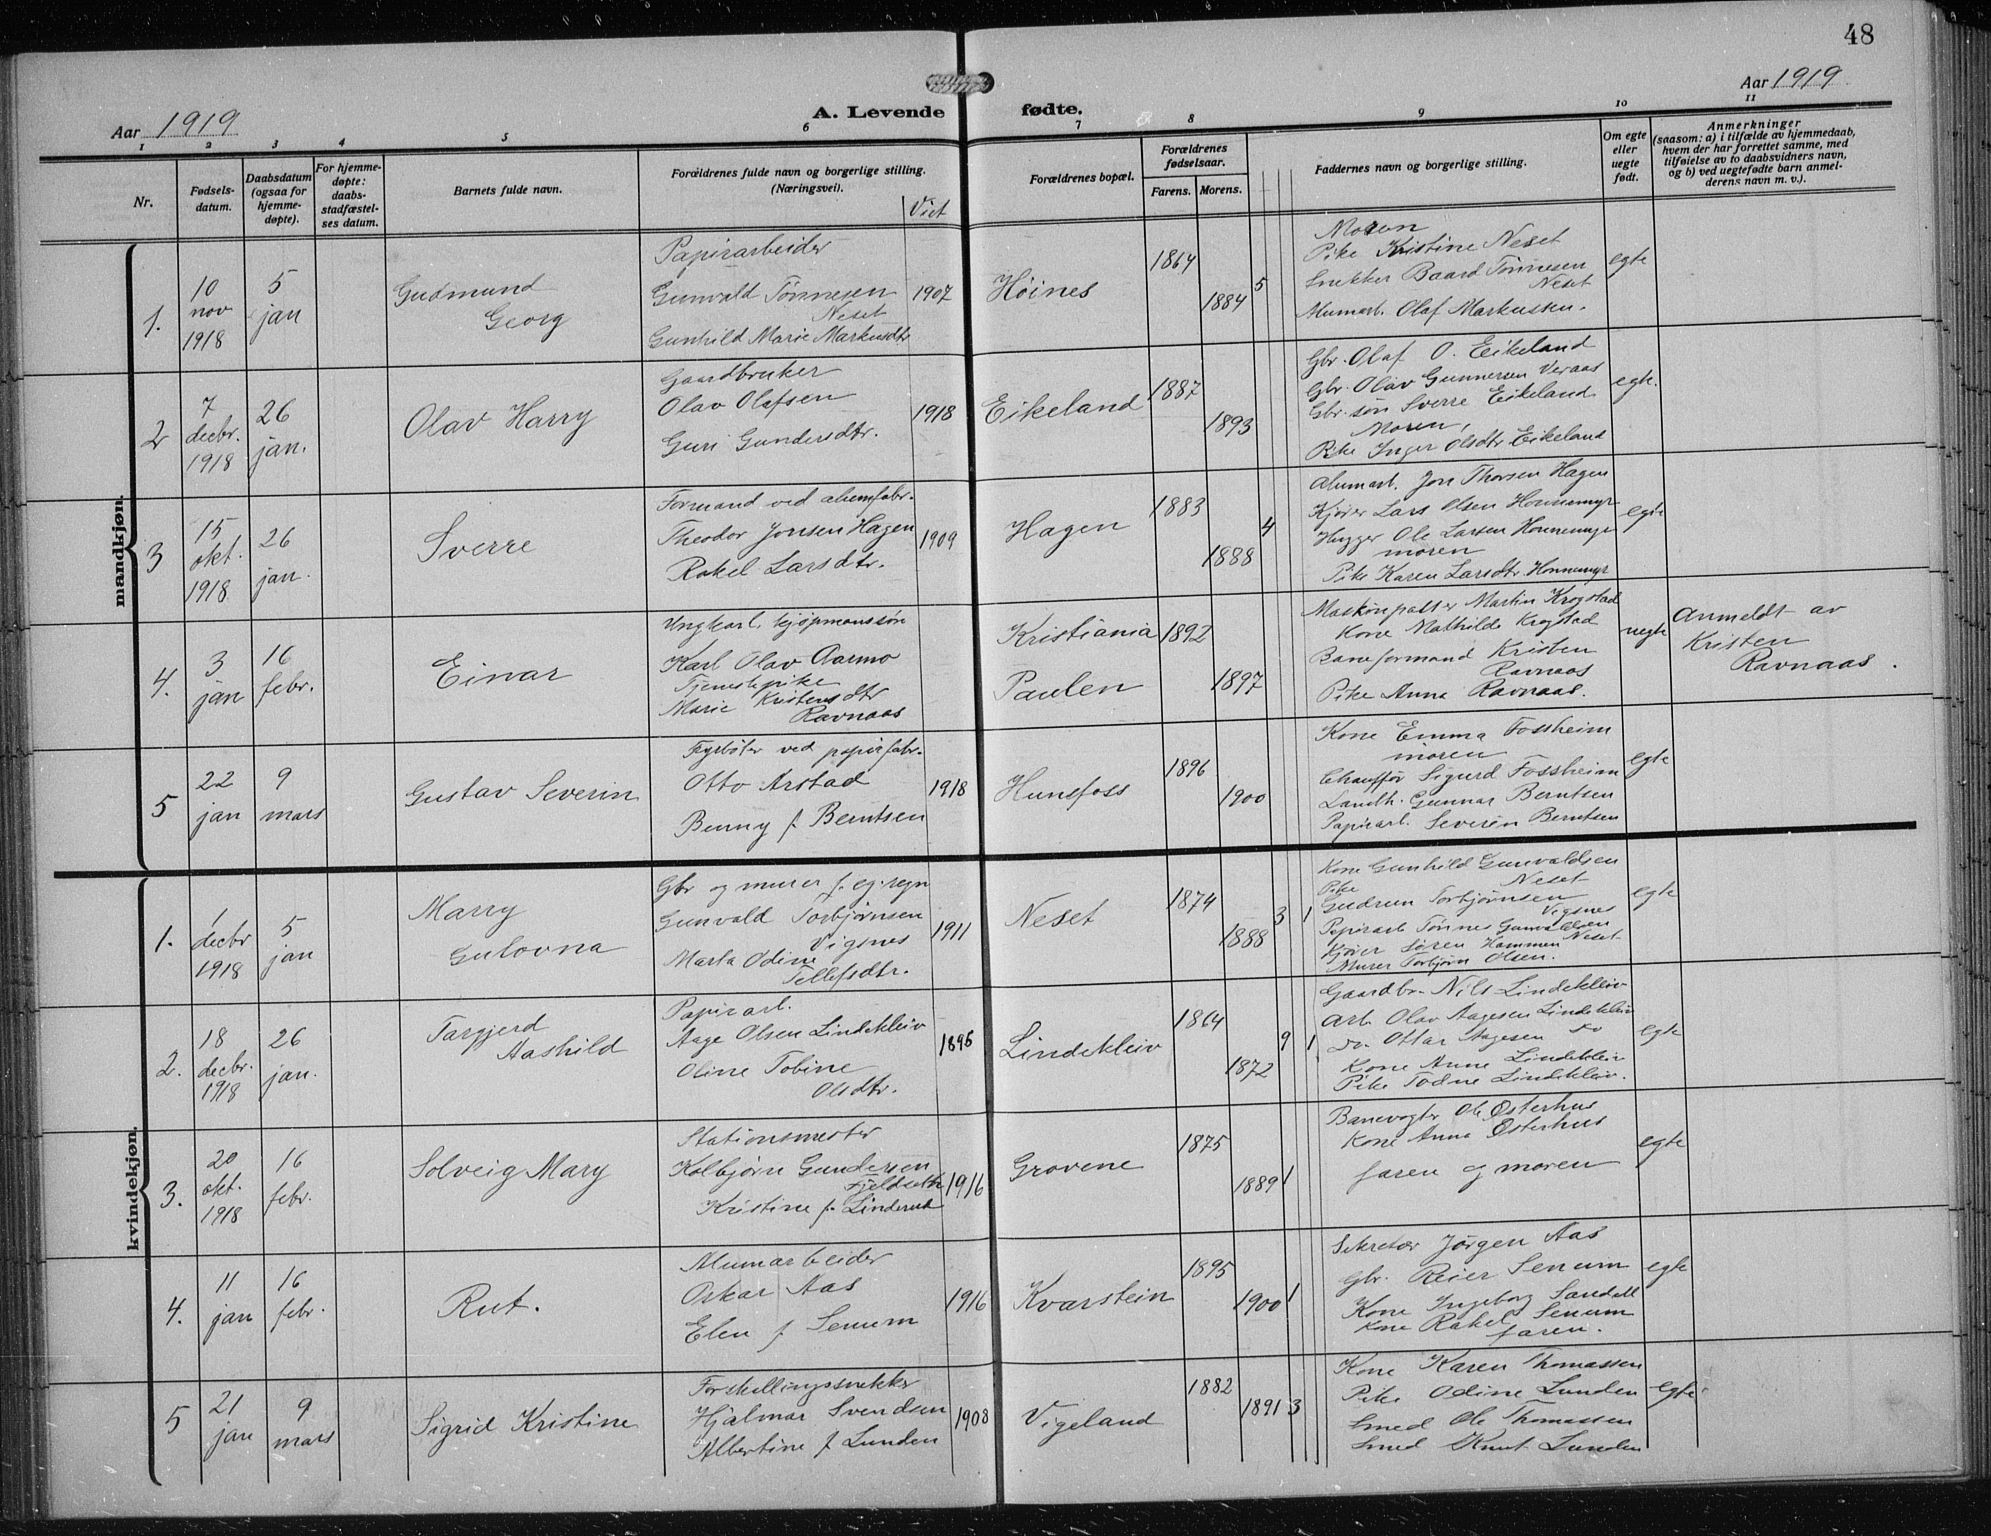 48
Aar 1919
A. Levende fødte.
Aar 1919
1 2 3 4 5 6 7 8 9 10 11
Nr.
Fødselsdatum.
Daabsdatum (ogsaa for hjemmedøpte).
For hjemmedøpte: daabsstadfæstelses datum.
Barnets fulde navn.
Forældrenes fulde navn og borgerlige stilling.
(Næringsvei).
Viet
Forældrenes bopæl.
Forældrenes fødselsaar.
Farens. Morens.
Faddernes navn og borgerlige stilling.
Om egte eller uegte født.
Anmerkninger
(saasom: a) i tilfælde av hjemmedaab,
hvem der har forrettet samme, med
tilføielse av to daabsvidners navn,
og b) ved uegtefødte barn anmelderens navn m. v.).
mandkjøn.
1. 10 nov 1918
5 jan
Gudmund
Georg
Papirarbeider
Gunvald Tönnesen
Neset
Gunhild Marie Markusdtr
1907
Höines
1864
1884
5
Moren
Pike Kristine Neset
Snekker Baard Tönnesen
Neset
Alumarb. Olaf Markussen.
egte
2 7 decbr. 1918
26 jan.
Olav Harry
Gaardbruker
Olav Olafsen
Guri Gundersdtr.
1918
Eikeland
1887
1893
Gbr. Olaf O. Eikeland
Gbr. Olav Gunnersen Veraas
Gbr. søn Sverre Eikeland
Moren,
Pike Inger Olsdtr Eikeland
egte.
3 15 okt. 1918
26 jan.
Sverre
Formand ved alumfabr.
Theodor Jonsen Hagen
Rakel Larsdtr.
1909
Hagen
1883
1888
4
Alumarb. Jon Thorsen Hagen
Kjører Lars Olsen Honnemyr
Hugger Ole Larsen Honnemyr
moren
Pike Karen Larsdtr Honnemyr
egte
4. 3 jan
16 febr.
Einar
Ungkarl, kjøpmanssøn
Karl Olav Aarmo
Tjenestepike
Marie Kristensdtr
Ravnaas
Kristiania
Paulen
1892
1897
Maskinpasser Martin Krogstad
Kone Mathilde Krogstad
Baneformand Kristen
Ravnaas
Pike Anna Ravnaas.
uegte
Anmeldt av
Kristen
Ravnaas.
5 22 jan
9 mars
Gustav Severin
Fyrbøter ved papirfabr.
Otto Arstad
Benny f. Berntsen
1918
Hunsfoss
1896
1900
Kone Emma Fossheim
moren
Chauffør Sigurd Fossheim
Landh. Gunnar Berntsen
Papirarb. Severin Berntsen
egte
kvindekjøn.
1. 1 decbr 1918
5 jan
Marry
Gulovna
Gbr og murer f. eg. regn
Gunvald Torbjørnsen
Vigsnes
Marta Odine
Tellefsdtr.
1911
Neset
1874
1888
3 1
Kone Gunhild Gunvaldsen
Neset
Pike
Gudrun Torbjørnsen
Vigsnes
Papirarb Tønnes Gunvaldsen
Neset
Kjører Søren Hammen
Murer Torbjørn Olsen.
egte
2. 18 decbr. 1918
26 jan.
Targjerd
Aashild
Papirarb.
Aage Olsen Lindekleiv
Oline Tobine
Olsdtr.
1896
Lindekleiv
1864
1872
9 1
Gaardbr. Nils Lindekleiv
Arb. Olav Aagesen Lindekleiv
do. Ottar Aagesen do
Kone Anne Lindekleiv
Pike Todne Lindekleiv.
egte
3. 20 okt. 1918
16 febr.
Solveig Mary
Stationsmester
Kolbjørn Gundersen
Fjeldsæth
Kristine f. Linderud
1916
Grovene
1875
1889
1
Banevogter Ole Østerhus
Kone Anna Østerhus
faren og moren
egte
4. 11 jan
16 febr.
Rut.
Alumarbeider
Oskar Aas
Elen f Senum
1916
Kvarstein
1895
1900
1
Sekretær Jørgen Aas
Gbr. Reier Senum
Kone Ingeborg Sandell
Kone Rakel Senum
faren.
egte
5 21 jan
9 mars
Sigrid Kristine
Forskallingssnekker
Hjalmar Svendsen
Albertine f. Lunden
1908
Vigeland
1882
1891
3
Kone Karen Thomassen
Pike Odine Lunden
Smed Ole Thomassen
Smed Knut Lunden
egte.